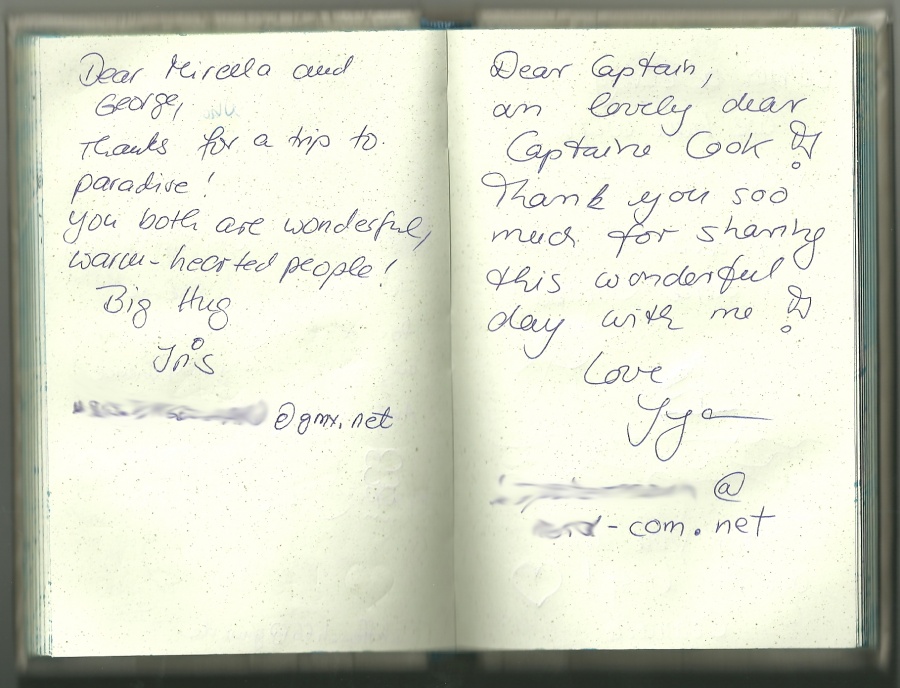 Dear Mirella and
George,
Thanks for a trip to
paradise!
you both are wonderful,
warm-hearted people!
Big Hug
Iris
@gmx.net
Dear Captain,
an lovely dear
Captaine Cook!
Thank you soo
much for sharing
this wonderful
day with me!
Love
@
-com.net